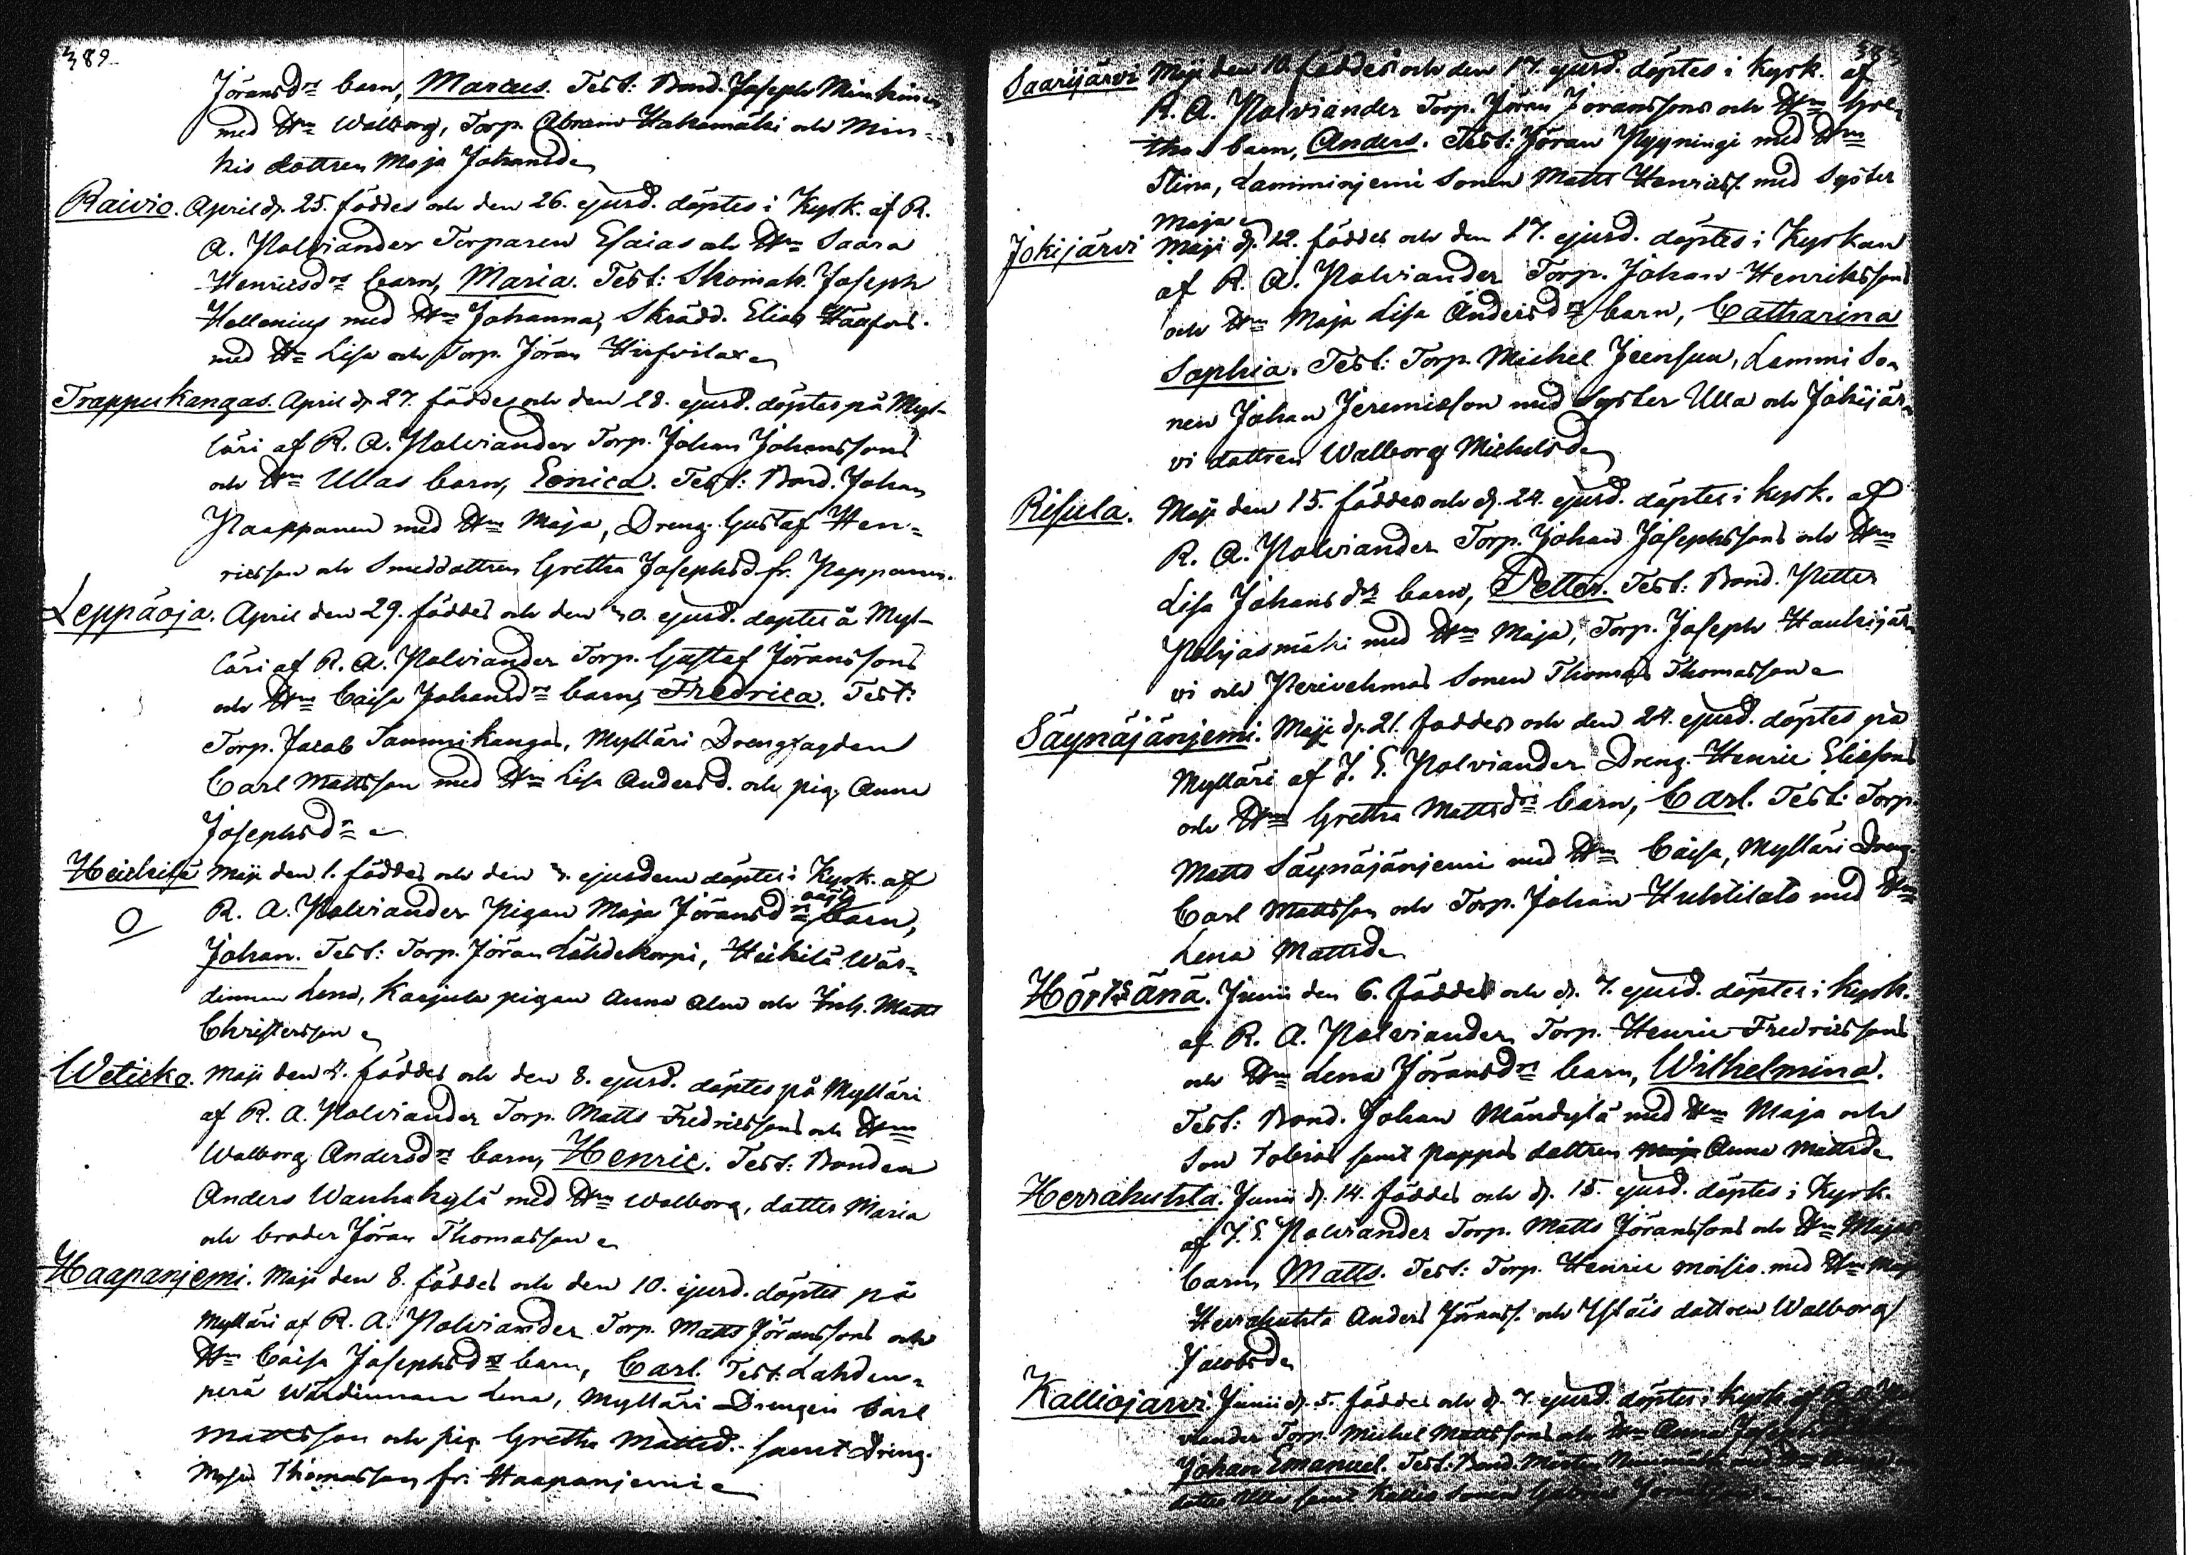 389
Jöransdrs barn, Marcus. Test: Bond. Joseph Minkinen
med Hm Walborg, Torp. Abram Hakamäki och Min-
kis dottren Maja Johansd.
Raivio. April d. 25. föddes och den 26. ejusd. döptes i Kyrk. af R.
A. Polviander Torparen Esaias och Hm Saara
Henricsdrs barn, Maria. Test: Skomak. Joseph
Hellenius med Hm Johanna, Skrädd. Elias
med Hm Lisa och Torp. Jöran
Trappukangas. April d. 27. föddes och den 28. ejusd. döptes på Myl-
läri af R. A. Polviander Torp. Johan Johanssons
och Hm Ullas barn, Eonica. Test: Bond. Johan
Paappanen med Hm Maja, Dreng. Gustaf Hen-
ricsson och Smeddottren Gretha Josephsd. fr.
Leppäoja. April den 29. föddes och den 30. ejusd. döptes å Myl-
läri af R. A. Polviander Torp. Gustaf Jöranssons
och Hm Caisa Johansdrs barn, Fredrica. Test:
Torp. Jacob Tammikangas, Mylläri Drengfogden
Carl Mattsson med Hm Lisa Andersd. och pig. Anna
Josephsdr
Heickilä Maji den 1. föddes och den 3. ejusdem döptes i Kyrk. af
R. A. Polviander Pigan Maja Jöransdrs oäkta barn,
O
Johan. Test: Torp. Jöran Lähdekorpi, Heikilä Wär-
dinnan Lena, Karjula pigan Anna och Inh. Matts
Christersson
Weticko. Maji den 4. föddes och den 8. ejusd. döptes på Mylläri
af R. A. Polviander Torp. Matts Fredricssons och Hm
Walborg Andersdrs barn, Henric. Test: Bonden
Anders Wanhakylä med Hm Walborg, dotter Maria
och broder Jöran Thomasson
Haapanjemi. Maji den 8. föddes och den 10. ejusd. döptes på
Mylläri af R. A. Polviander Torp. Matts Jöranssons och
Hm Caisa Josephsdrs barn, Carl. Test: Lahden-
perä Wärdinnan Lena, Mylläri Drengen Carl
Mattsson och pig. Gretha Mattsd. samt Dreng.
Thomasson fr. Haapanjemi
Saarijärvi Maji den 10. föddes och den 17. ejusd. döptes i Kyrk. af
R. A. Polviander Torp. Jöran Joranssons och Hm Gre-
thas barn, Anders. Test: Jöran Pyyningi med Hm
Stina, Lamminjemi Sonen Matts Henricss. med Syster
Maja
Jokijärvi Maji d. 12. föddes och den 17. ejusd. döptes i Kyrkan
af R. A. Polviander Torp. Johan Henrikssons
och Hm Maja Lisa Andersdrs barn, Catharina
Sophia. Test: Torp. Michel Jeensuu, Lammi So-
nen Johan Jeremiasson med Syster Ulla och Jokijär-
vi dottren Walborg Michelsd.
Risula. Maji den 15. föddes och d. 24. ejusd. döptes i Kyrk. af
R. A. Polviander Torp. Johan Josephssons och Hm
Lisa Johansdrs barn, Petter. Test: Bond. Petter
Pohjasmäki med Hm Maja, Torp. Joseph Haukijär-
vi och Sonen Thomas Thomasson
Säynäjänjemi. Maji d. 21. föddes och den 24. ejusd. döptes på
Mylläri af J. E. Polviander Dreng. Henric Eliassons
och Hm Gretha Mattsdrs barn, Carl. Test: Torp.
Matts Säynäjänjemi med Hm Caisa, Mylläri Dreng.
Carl Mattsson och Torp. Johan Huhtilato med Hm
Lena Mattsd.
Hörkänä. Junii den 6. föddes och d. 7. ejusd. döptes i Kyrk.
af R. A. Polviander Torp. Henric Fredricssons
och Hm Lena Jöransdrs barn, Wilhelmina.
Test: Bond. Johan Mändylä med Hm Maja och
Son Tobias samt Pappas dottren Maja Anna Mattsd.
Herrahuhta. Junii d. 14. föddes och d. 15. ejusd. döptes i Kyrk.
af J. E. Polviander Torp. Matts Jöranssons och Hm Majas
barn, Matts. Test: Torp. Henric Moisio med Hm
Herrahuhta Anders Jöranss. och dottren Walborg
Jacobsd.
Kalliojärvi. Junii d. 5. föddes och d. 7. ejusd. döptes i Kyrk. af R. A.
viander Torp. Michel Mattssons och Hm Anna
Johan Emanuel. Test: Bond. Mårten med Hm
dotter Ulla samt Sonen